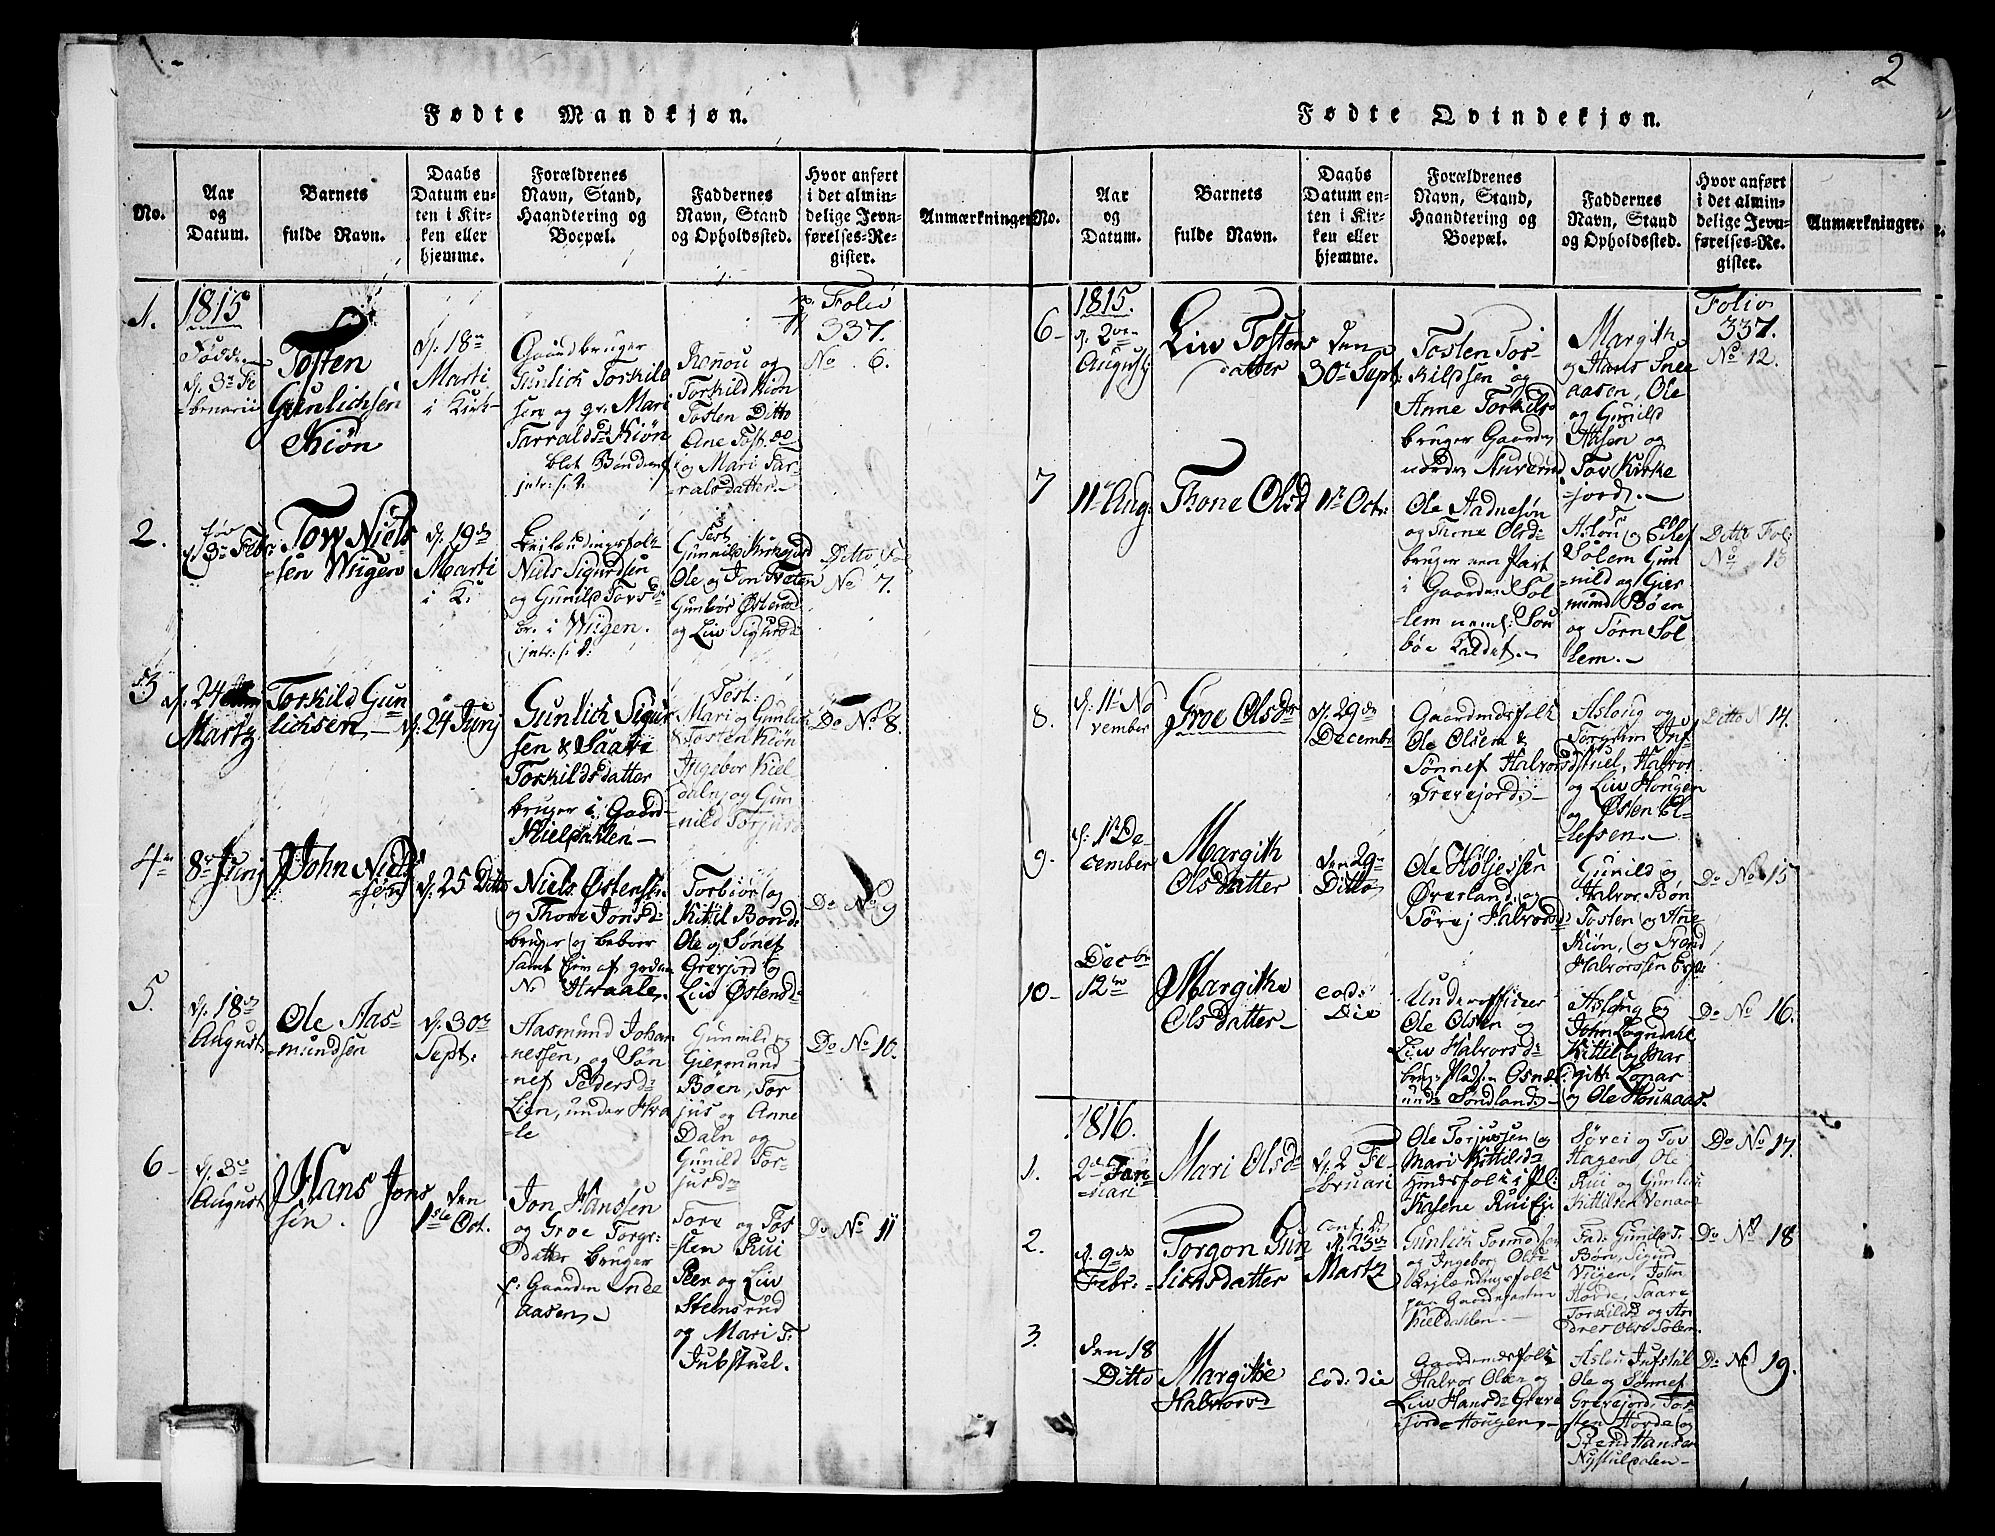 2
Fødte Mandkjøn.
No.
Aar
og
Datum.
Barnets
fulde Navn.
Daabs
Datum en-
ten i Kir-
ken eller
hjemme.
Forældrenes
Navn, Stand,
Haandtering og
Boepæl.
Faddernes
Navn, Stand
og Opholdssted.
Hvor anført
i det almin-
delige Jevn-
førelses-Re-
gister.
Anmærkninger.
1.
1815
d. 3 Fe
bruarii
Tosten
Gunlichsen
Kiøn
d. 18
Marti
i Kirk
Gaardbruger
Gunlich Torkild
sen og Mari
Tarralds Kiøn
Torkild Kiøn
Tosten Ditto
og Mari Tar-
ralsdatter
Folio
337.
No 6.
2.
Tow Niels
sen Wiigen
d. 19
Marti
i K.
Niels Sigurdsen
og Gunild Tovsd
br. i Wiigen.
Test
Ole og Jon Treten
og Liv Sigurds
Ditto Fo
No 7.
3
d. 24
Martz
Torkild Gun
lichsen
d. 24 Junj
Gunlich Sigur
sen & Saavi
Torkildsdatter
bruger i Gaard
Kieldahlen
Test:
Mari og Gunlich
& Tosten Kiøn
Ingebor Kiel
daln og Gun
nild Torjusd
Do No 8.
4
8 Junj
John Niels
søn
d. 25 Ditto
Niels Østensen
og Thone Jonsd
bruger og beboer
Torbiør og
Kittil Bond
Ole og Sønef
Grevjord og
Liv Østensd
Do No 9
5.
d. 18
August
Ole Aas-
mundsen
d. 30
Sept:
Aasmund Johan
nessen, og Søn
nef Pedersd
Lien, under Hva
le
Gunnild og
Giermund
Bøen, Tor
jus og Anne
Daln og
Gunild Tor-
jusd
Do No 10.
6
d. 3
August
Hans Jons
sen.
den
1ste Oct.
Jon Hanssen
og Groe Torgr
datter bruger
Gaarden Snee
aasen
Tore og Tos
sten Rui
Peer og Liv
Stensrud
og Mari T.
Jubstuel.
Do No 11
Fødte Qvindekjøn.
No.
Aar
og
Datum.
Barnets
fulde Navn.
Daabs
Datum en-
ten i Kir-
ken eller
hjemme.
Forældrenes
Navn, Stand,
Haandtering og
Boepæl.
Faddernes
Navn, Stand
og Opholdssted.
Hvor anført
i det almin-
delige Jevn-
førelses-Re-
gister.
Anmærkninger.
6
1815.
d. 2
August
Liv Tostens
datter
den
30 Sept:
Tosten Tor-
kildsen og
Anne Torkils
bruger Gaarden
Margith
og Hans Snee
aasen, Ole
og Gunild
Aasen og
Tov Kirke
jord.
Folio
337.
No 12.
7
11 Aug:
Thone Olsd
1 Octr:
Ole Aadnesøn
og Thone Olsd
bruger een Part
i Gaarden Sol
lem
Aslou og Eilef
Solem Gun
nild og Gier
mund Bøen
og Tørn Sol
lem.
Ditto Fol:
No 13
8.
d. 11 No
vember
Groe Olsdr
d. 29
Decembr
Gaardmdsfolk
Ole Olsen &
Sønnef Halvorsd
Grevejord
Aslong og
Torgrim Juf
stuel, Halvor
og Liv Hougen
og Østen El-
lefsen
Ditto N 14.
9
d. 1 De-
cember
Margith
Olsdatter
den 29
Ditto
Ole Høljessen
Øverland og
Sørej Halvorsd
Gunild og
Halvor Bøn
Tosten og Ane
Kiøn, og Svend
Halvorssen
Do No 15
10
Decbr
12
Margithe
Olsdatter
eod:
Die
Underofficer
Ole Olsen og
Liv Halvorsd
under Søndland
Aslong og
John Logndahl
Kittil og Mar
gith Lonar
og Ole Houkaas.
Do No 16.
1816.
1.
2 Jan
uari
Mari Olsdr
d. 2 Fe
bruari
Ole Torjussen og
Mari Kittilsd
Søvei og Tov
Hagen Ole
Rui og Gunlich
Kittilsen Venaas
Do No 17.
2.
d. 9
Febr:
Torgon Gun
lichsdatter
conf. d.
d. 23
Martz
Gunlich Tormodsen
og Ingeborg Olsd
paa Gaardeparten
Kieldahlen.
Fad: Gunild T.
Bøn, Sigurd
Viigen, John
Hovde, Saave
Torkilds og An
dres Olss Solem
Do No 18
3.
den 18
Ditto
Margithe
Halvorsd
Eod: die
Gaardmdsfolk
Halvor Olsen og
Liv Hansd Greve
jord Hougen
Aslou Jufstul
Ole og Sønnef
Grevejord, Tos-
sten Hovde og
Svend Hansen
Nystuldalen
Do No 19.